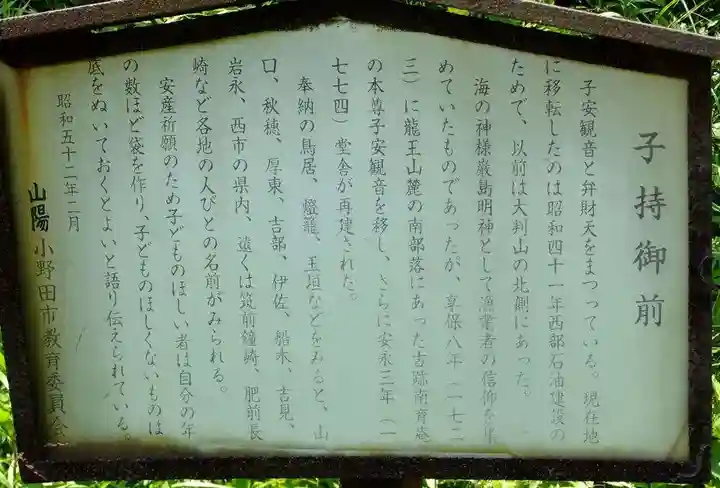 子持御前
子安観音と弁財天をまつっている。現在地
に移転したのは昭和四十一年西部石油建設の
ためで、以前は大判山の北側にあった。
海の神様厳島明神として漁業者の信仰を集
めていたものであったが、享保八年(一七二
三)に龍王山麓の南部落にあった古跡南育庵
の本尊子安観音を移し、さらに安永三年(一
七七四)堂舎が再建された。
奉納の鳥居、燈籠、玉垣などをみると、山
口、秋穂、厚東、吉部、伊佐、船木、吉見、
岩永、西市の県内、遠くは筑前鐘崎、肥前長
崎など各地の人びとの名前がみられる。
安産祈願のため子どものほしい者は自分の年
の数ほど袋を作り、子どものほしくないものは
底をぬいておくとよいと語り伝えられている。
昭和五十二年二月
山陽小野田市教育委員会